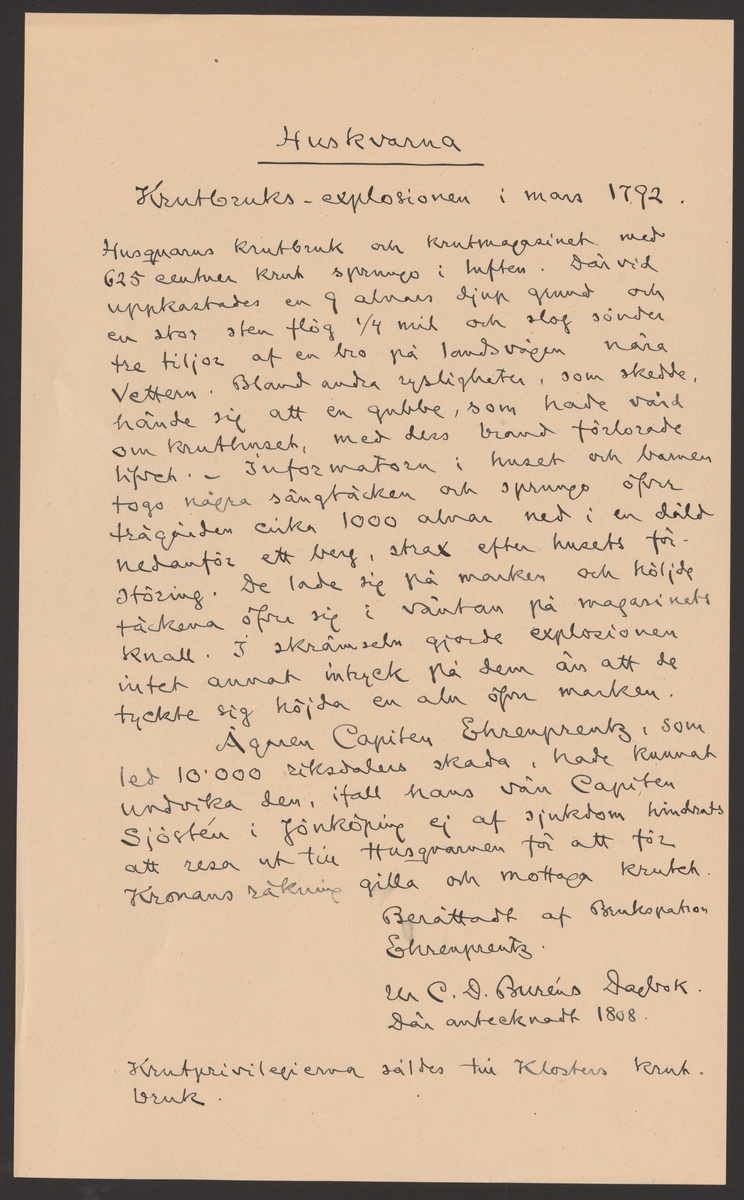 Huskvarna
Krutbruks-explosionen i mars 1792.
Husquarns krutbruk och krutmagasinet med
625 centner krut sprungo i luften. Därvid
uppkastades en 9 alnars djup grund och
en stor sten flög 1/4 mil och slog sönder
tre tiljor af en bro på landsvägen nära
Vettern. Bland andra rysligheter, som skedde,
hände sig att en gubbe, som hade vård
om kruthuset, med dess brand förlorade
lifvet. - Informatorn i huset och barnen
togo några sängtäcken och sprungo öfver
trägården cirka 1000 alnar ned i en däld
nedanför ett berg, strax efter husets för-
störing. De lade sig på marken och höljde
täckena öfver sig i väntan på magasinets
knall. I skrämseln gjorde explosionen
intet annat intryck på dem än att de
tyckte sig höjda en aln öfver marken.
Ägaren Capiten Ehrenprentz, som
led 10'000 riksdalers skada, hade kunnat
undvika den, ifall hans vän Capiten
Sjöstén i Jönköping ej af sjukdom hindrats
att resa ut till Husqvarnen för att för
Kronans räkning gilla och mottaga krutet.
Berättadt af Brukspatron
Ehrenprentz.
Ur C. D. Buréns Dagbok.
Där antecknadt 1808.
Krutprivilegierna såldes till Klosters krut-
bruk.